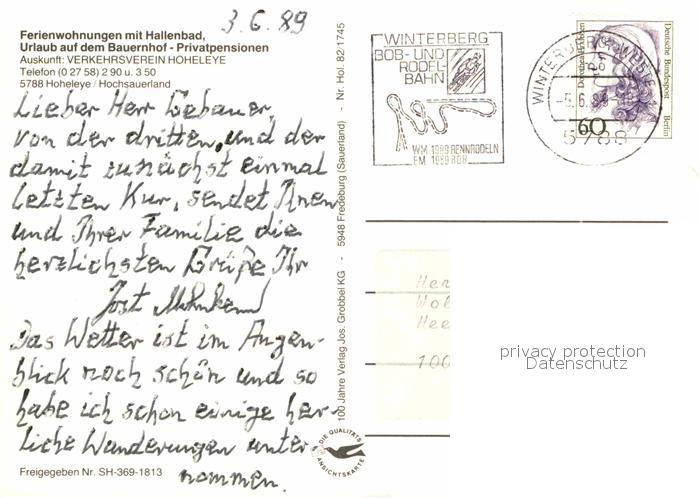 3.6.89
Ferienwohnungen mit Hallenbad,
Urlaub auf dem Bauernhof - Privatpensionen
Auskunft: VERKEHRSVEREIN HOHELEYE
Telefon (0 27 58) 2 90 u. 3 50
5788 Hoheleye / Hochsauerland
Lieber Herr Gebauer,
von der dritten, und der
damit zunächst einmal
letzten Kur, sendet Ihnen
und Ihrer Familie die
herzlichsten Grüße Ihr
Jost
Das Wetter ist im Augen-
blick noch schön und so
habe ich schon einige herr-
liche Wanderungen unter-
nommen.
Freigegeben Nr. SH-369-1813
100 Jahre Verlag Jos. Grobbel KG - 5948 Fredeburg (Sauerland) - Nr. Hol. 82/1745
DIE QUALITÄTS
ANSICHTSKARTE
WINTERBERG
BOB- UND
RODEL-
BAHN
WM 1989 RENNRODELN
EM 1989 BOB
WINTERBERG, WESTF
-5.6.89
5788
Deutsche Bundespost
Berlin
60
Her
Wol
Hee
100
privacy protection
Datenschutz